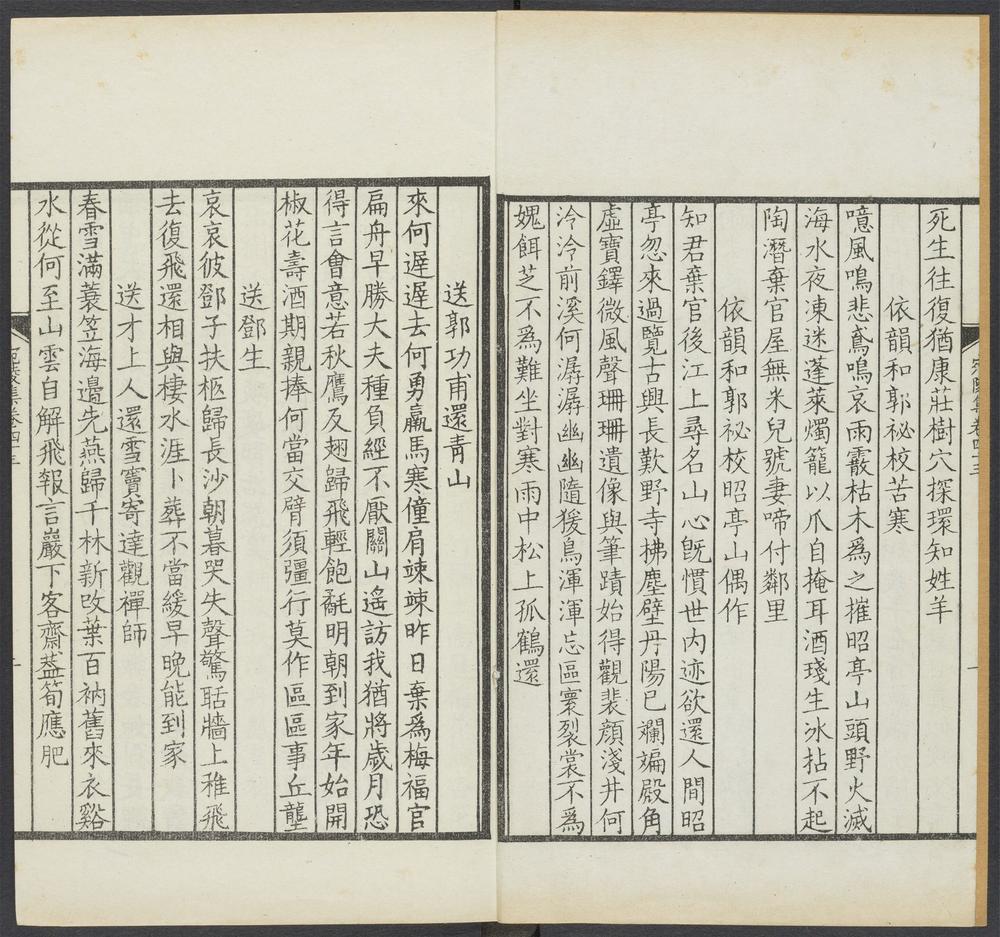 死生往復猶康莊樹穴探環知姓羊
依韻和郭祕校苦寒
噫風鳴悲鳶鳴哀雨霰枯木爲之摧昭亭山頭野火滅
海水夜凍迷蓬萊燭籠以爪自掩耳酒琖生冰拈不起
陶潛棄官屋無米兒號妻啼付鄰里
依韻和郭祕校昭亭山偶作
知君棄官後江上尋名山心旣慣世内迹欲還人間昭
亭忽來過覽古興長歎野寺拂塵壁丹陽已斓斒殿角
虛寶鐸微風聲珊珊遺像與筆蹟始得觀裴顔淺井何
泠泠前溪何潺潺幽幽隨猨鳥渾渾忘區寰裂裳不爲
媿餌芝不爲難坐對寒雨中松上孤鶴還
送郭功甫還青山
來何遲遲去何勇羸馬寒僮肩竦竦昨日棄爲梅福官
扁舟早勝大夫種負經不厭關山遙訪我猶將歲月恐
得言會意若秋鷹反翅歸飛輕飽氄明朝到家年始開
椒花壽酒期親捧何當交臂須彊行莫作區區事丘壟
送鄧生
哀哀彼鄧子扶柩歸長沙朝暮哭失聲驚聒牆上稚飛
去復飛還相與棲水涯卜葬不當緩早晚能到家
送才上人還雪竇寄達觀禪師
春雪滿蓑笠海邊先燕歸千林新攺葉百衲舊來衣谿
水從何至山雲自解飛報言巖下客齋葢筍應肥